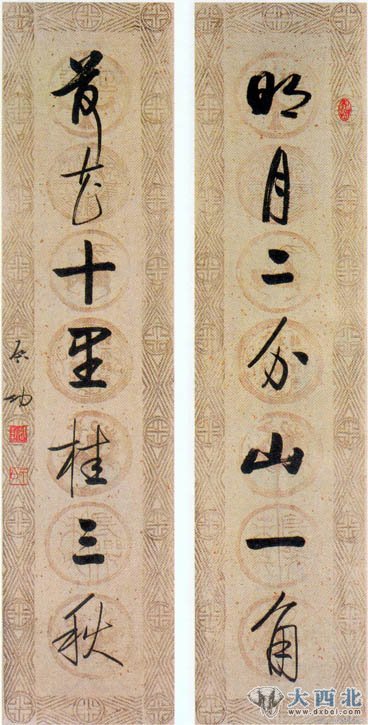 明月二分山一角
荷花十里桂三秋
启功
大西北
www.dxbei.com